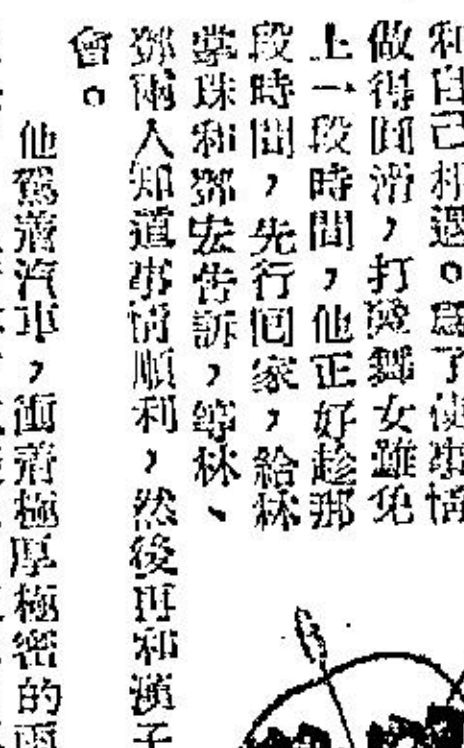 和自己相遇。爲了使事情
做得圓滑，打發舞女雖免
上一段時間，他正好趁那
段時間，先行回家，給林
掌珠和鄧宏告訴，縱林、
鄧兩人知道事情順利，然後再和演子
會。
他駕着汽車，衝着極厚極密的雨